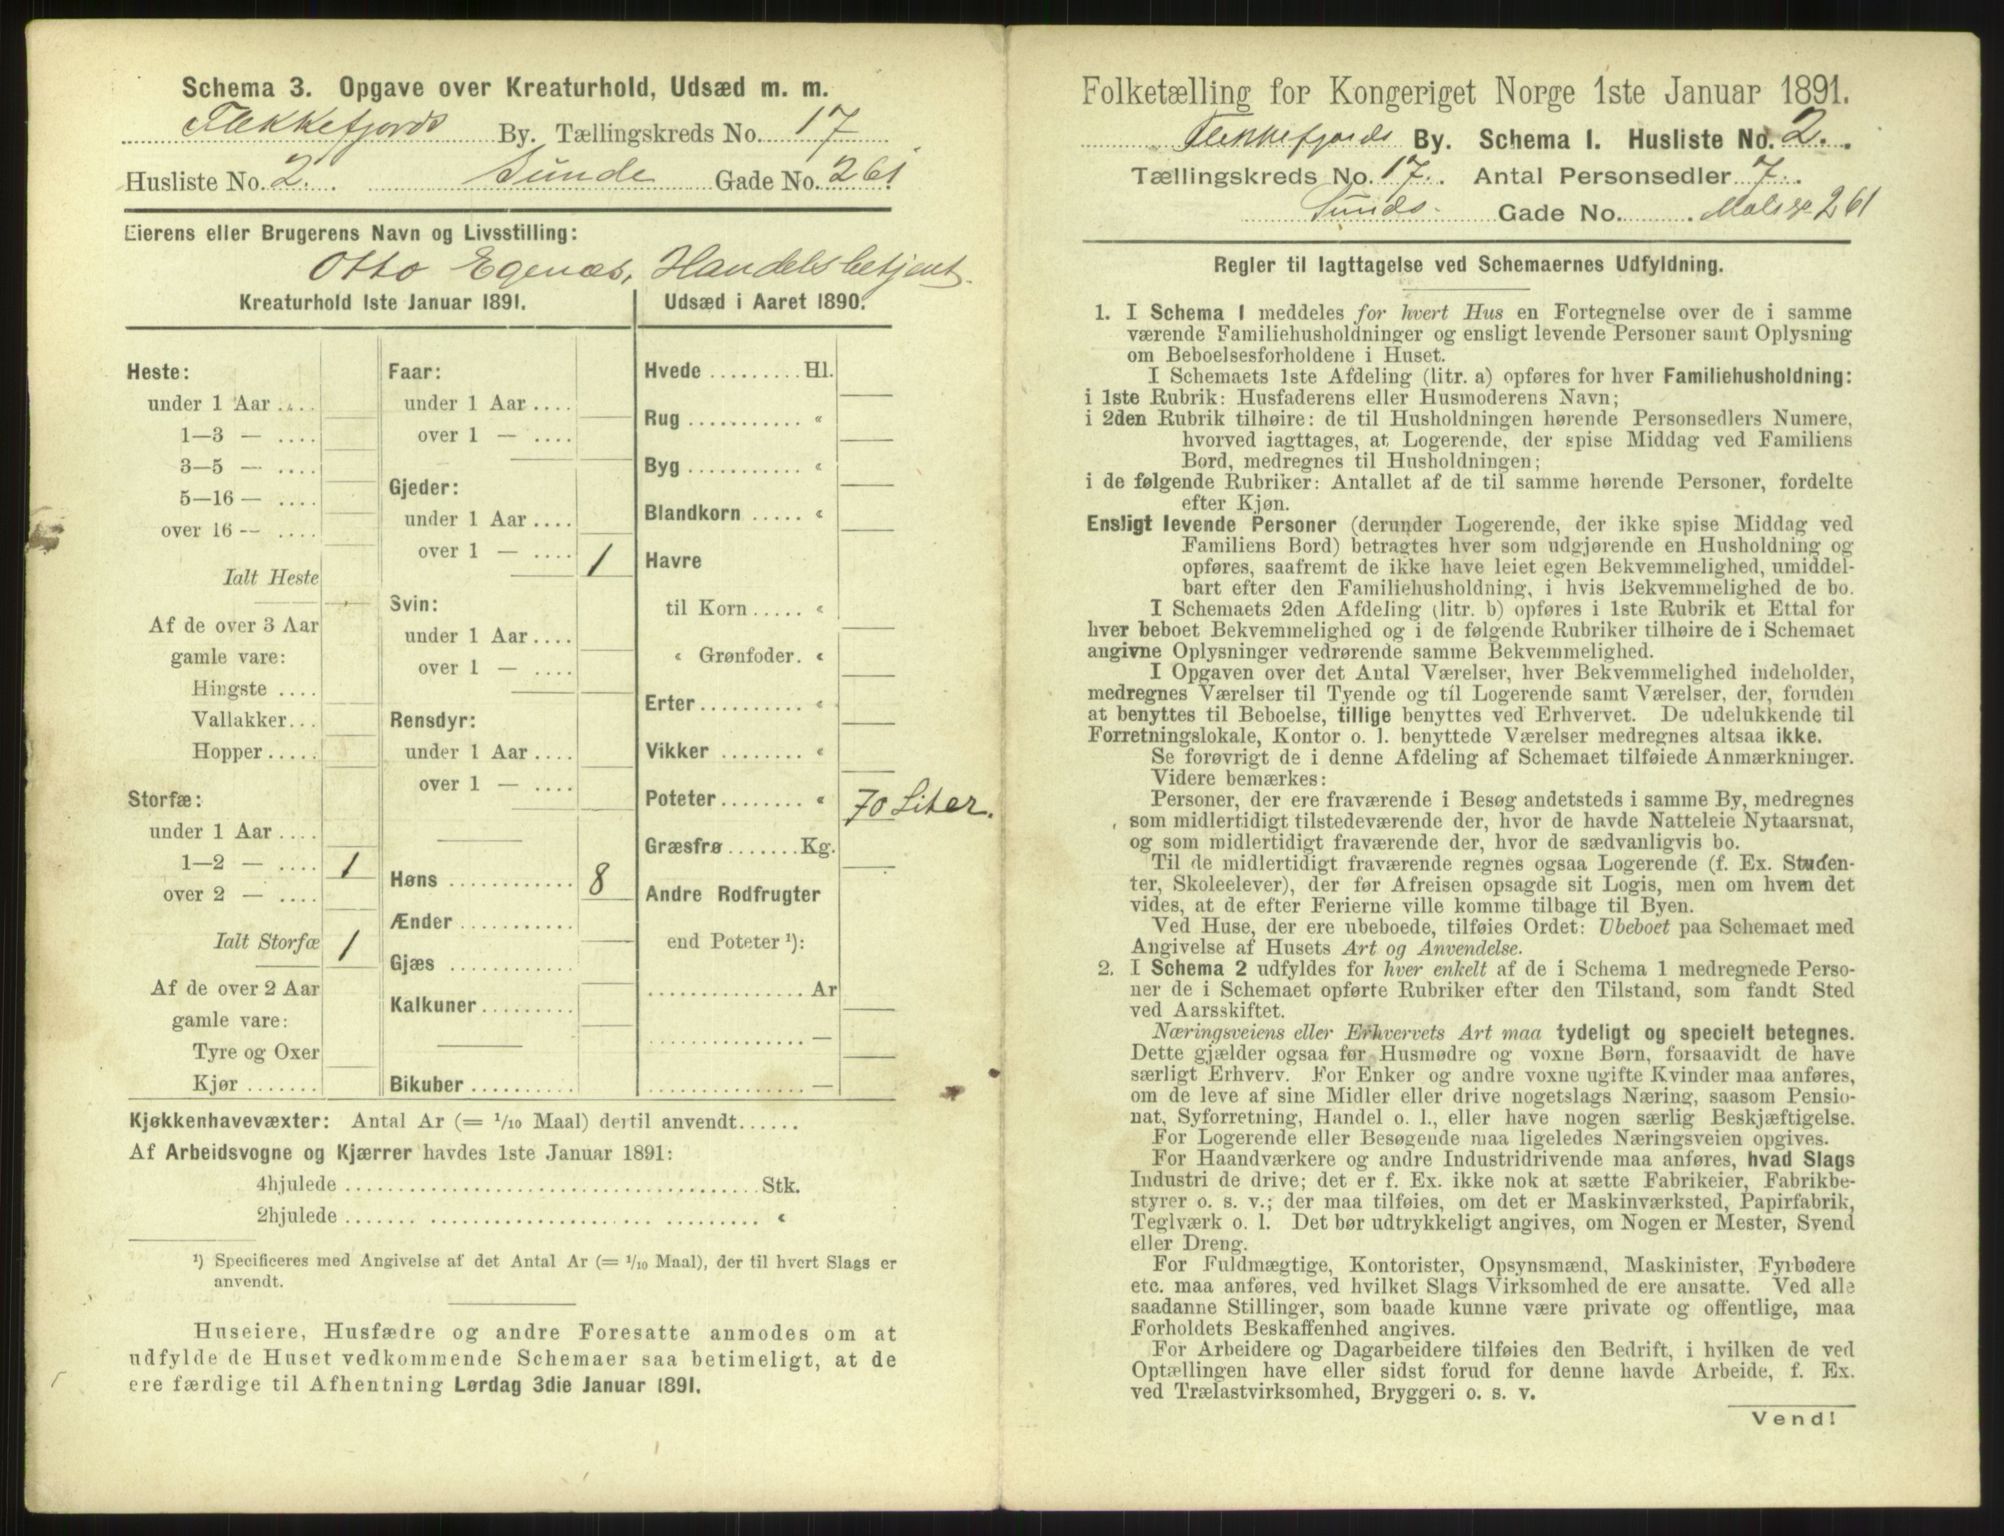 Schema 3. Opgave over Kreaturhold, Udsæd m. m.
Flekkefjords By. Tællingskreds No. 17
Husliste No. 2. Sunde Gade No. 261
Eierens eller Brugerens Navn og Livsstilling:
Otto Egenæs, Handelsbetjent.
Kreaturhold 1ste Januar 1891.
Heste:
under 1 Aar ....
1—3 — ....
3—5 — ....
5—16 — ....
over 16 — ....
Ialt Heste
Af de over 3 Aar
gamle vare:
Hingste ....
Vallakker...
Hopper .....
Storfæ:
under 1 Aar ....
1—2 — .... 1
over 2 — ....
Ialt Storfæ 1
Af de over 2 Aar
gamle vare:
Tyre og Oxer
Kjør .......
Faar:
under 1 Aar ....
over 1 — ....
Gjeder:
under 1 Aar ....
over 1 — .... 1
Svin:
under 1 Aar ....
over 1 — ....
Rensdyr:
under 1 Aar ....
over 1 — ....
Høns ............ 8
Ænder ...........
Gjæs ............
Kalkuner .........
Bikuber ..........
Udsæd i Aaret 1890.
Hvede ......... Hl.
Rug ........... «
Byg ........... «
Blandkorn ..... «
Havre
til Korn ..... «
« Grønfoder. «
Erter .......... «
Vikker ........ «
Poteter ........ « 70 Liter.
Græsfrø ....... Kg.
Andre Rodfrugter
end Poteter ¹):
............... Ar
............... —
............... —
Kjøkkenhavevæxter: Antal Ar (= 1/10 Maal) dertil anvendt......
Af Arbeidsvogne og Kjærrer havdes 1ste Januar 1891:
4hjulede ........................................ Stk.
2hjulede ........................................ «
¹) Specificeres med Angivelse af det Antal Ar (= 1/10 Maal), der til hvert Slags er
anvendt.
Huseiere, Husfædre og andre Foresatte anmodes om at
udfylde de Huset vedkommende Schemaer saa betimeligt, at de
ere færdige til Afhentning Lørdag 3die Januar 1891.
Folketælling for Kongeriget Norge 1ste Januar 1891.
Flekkefjords By. Schema 1. Husliste No. 2.
Tællingskreds No. 17. Antal Personsedler 7.
Sunds. Gade No. 261
Regler til Iagttagelse ved Schemaernes Udfyldning.
1. I Schema 1 meddeles for hvert Hus en Fortegnelse over de i samme
værende Familiehusholdninger og ensligt levende Personer samt Oplysning
om Beboelsesforholdene i Huset.
I Schemaets 1ste Afdeling (litr. a) opføres for hver Familiehusholdning:
i 1ste Rubrik: Husfaderens eller Husmoderens Navn;
i 2den Rubrik tilhøire: de til Husholdningen hørende Personsedlers Numere,
hvorved iagttages, at Logerende, der spise Middag ved Familiens
Bord, medregnes til Husholdningen;
i de følgende Rubriker: Antallet af de til samme hørende Personer, fordelte
efter Kjøn.
Ensligt levende Personer (derunder Logerende, der ikke spise Middag ved
Familiens Bord) betragtes hver som udgjørende en Husholdning og
opføres, saafremt de ikke have leiet egen Bekvemmelighed, umiddel-
bart efter den Familiehusholdning, i hvis Bekvemmelighed de bo.
I Schemaets 2den Afdeling (litr. b) opføres i 1ste Rubrik et Ettal for
hver beboet Bekvemmelighed og i de følgende Rubriker tilhøire de i Schemaet
angivne Oplysninger vedrørende samme Bekvemmelighed.
I Opgaven over det Antal Værelser, hver Bekvemmelighed indeholder,
medregnes Værelser til Tyende og til Logerende samt Værelser, der, foruden
at benyttes til Beboelse, tillige benyttes ved Erhvervet. De udelukkende til
Forretningslokale, Kontor o. l. benyttede Værelser medregnes altsaa ikke.
Se forøvrigt de i denne Afdeling af Schemaet tilføiede Anmærkninger.
Videre bemærkes:
Personer, der ere fraværende i Besøg andetsteds i samme By, medregnes
som midlertidigt tilstedeværende der, hvor de havde Natteleie Nytaarsnat,
og som midlertidigt fraværende der, hvor de sædvanligvis bo.
Til de midlertidigt fraværende regnes ogsaa Logerende (f. Ex. Studen-
ter, Skoleelever), der før Afreisen opsagde sit Logis, men om hvem det
vides, at de efter Ferierne ville komme tilbage til Byen.
Ved Huse, der ere ubeboede, tilføies Ordet: Ubeboet paa Schemaet med
Angivelse af Husets Art og Anvendelse.
2. I Schema 2 udfyldes for hver enkelt af de i Schema 1 medregnede Perso-
ner de i Schemaet opførte Rubriker efter den Tilstand, som fandt Sted
ved Aarsskiftet.
Næringsveiens eller Erhvervets Art maa tydeligt og specielt betegnes.
Dette gjælder ogsaa for Husmødre og voxne Børn, forsaavidt de have
særligt Erhverv. For Enker og andre voxne ugifte Kvinder maa anføres,
om de leve af sine Midler eller drive nogetslags Næring, saasom Pensio-
nat, Syforretning, Handel o. l., eller have nogen særlig Beskjæftigelse.
For Logerende eller Besøgende maa ligeledes Næringsveien opgives.
For Haandværkere og andre Industridrivende maa anføres, hvad Slags
Industri de drive; det er f. Ex. ikke nok at sætte Fabrikeier, Fabrikbe-
styrer o. s. v.; der maa tilføies, om det er Maskinværksted, Papirfabrik,
Teglværk o. l. Det bør udtrykkeligt angives, om Nogen er Mester, Svend
eller Dreng.
For Fuldmægtige, Kontorister, Opsynsmænd, Maskinister, Fyrbødere
etc. maa anføres, ved hvilket Slags Virksomhed de ere ansatte. Ved alle
saadanne Stillinger, som baade kunne være private og offentlige, maa
Forholdets Beskaffenhed angives.
For Arbeidere og Dagarbeidere tilføies den Bedrift, i hvilken de ved
Optællingen have eller sidst forud for denne havde Arbeide, f. Ex.
ved Trælastvirksomhed, Bryggeri o. s. v.
Vend!